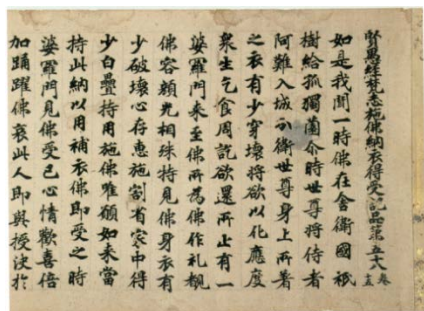 賢愚經梵志施佛納衣得受記品第五十八 卷十五
如是我聞一時佛在舍衛國祇
樹給孤獨園尒時世尊將侍者
阿難入城分衛世尊身上所著
之衣有少穿壞將欲以化應度
衆生乞食周訖欲還所止有一
婆羅門来至佛所為佛作礼覩
佛容顔光相殊特見佛身衣有
少破壞心存惠施割省家中得
少白疊持用施佛唯願如来當
持此納以用補衣佛即受之時
婆羅門見佛受已心情歡喜倍
加踊躍佛哀此人即與授決於